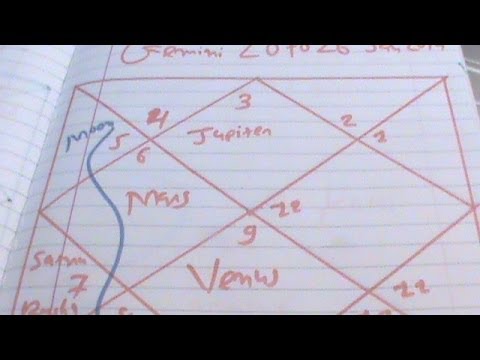 Gemini 20 to 26 Jan 2014
3
4
2
Moon
5
Jupiter
1
6
Mars
12
9
Satrn
7
Venus
11